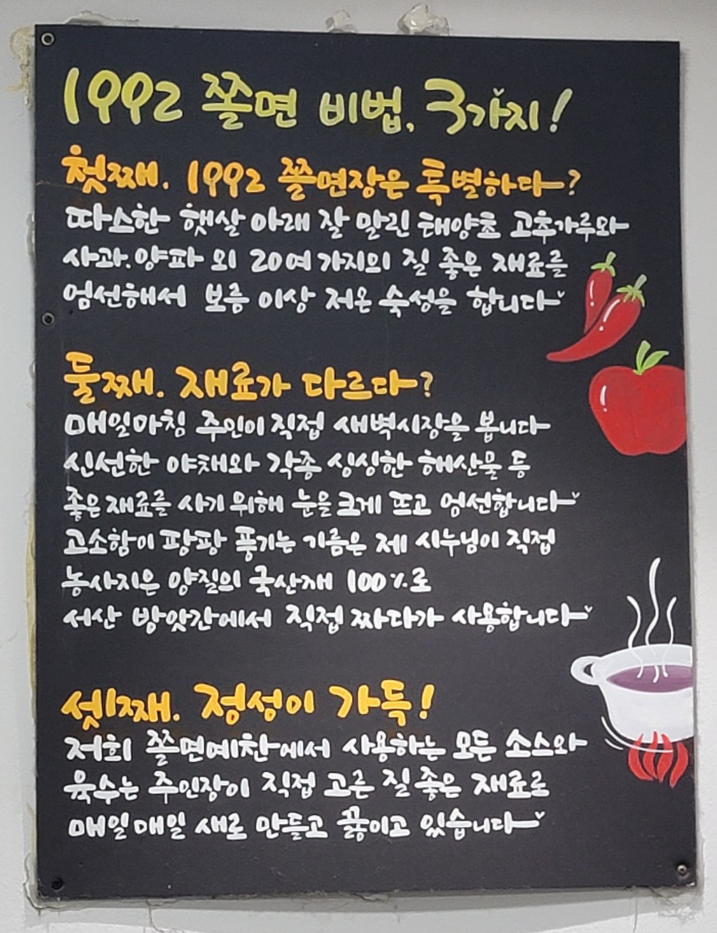 1992 쫄면 비법, 3가지!
첫째. 1992 쫄면장은 특별하다~?
따스한 햇살 아래 잘 말린 태양초 고추가루와~
사과.양파 외 20여가지의 질 좋은 재료를
엄선해서 보름 이상 저온 숙성을 합니다~
둘째. 재료가 다르다~?
매일아침 주인이 직접 새벽시장을 봅니다~
신선한 야채와 각종 싱싱한 해산물 등
좋은 재료를 사기 위해 눈을 크게 뜨고 엄선합니다~
고소함이 팡팡 풍기는 기름은 제 시누님이 직접
농사지은 양질의 국산깨 100%로
서산 방앗간에서 직접 짜다가 사용합니다~
셋째. 정성이 가득!
저희 쫄면예찬에서 사용하는 모든 소스와
육수는 주인장이 직접 고른 질 좋은 재료로
매일매일 새로 만들고 끓이고 있습니다~